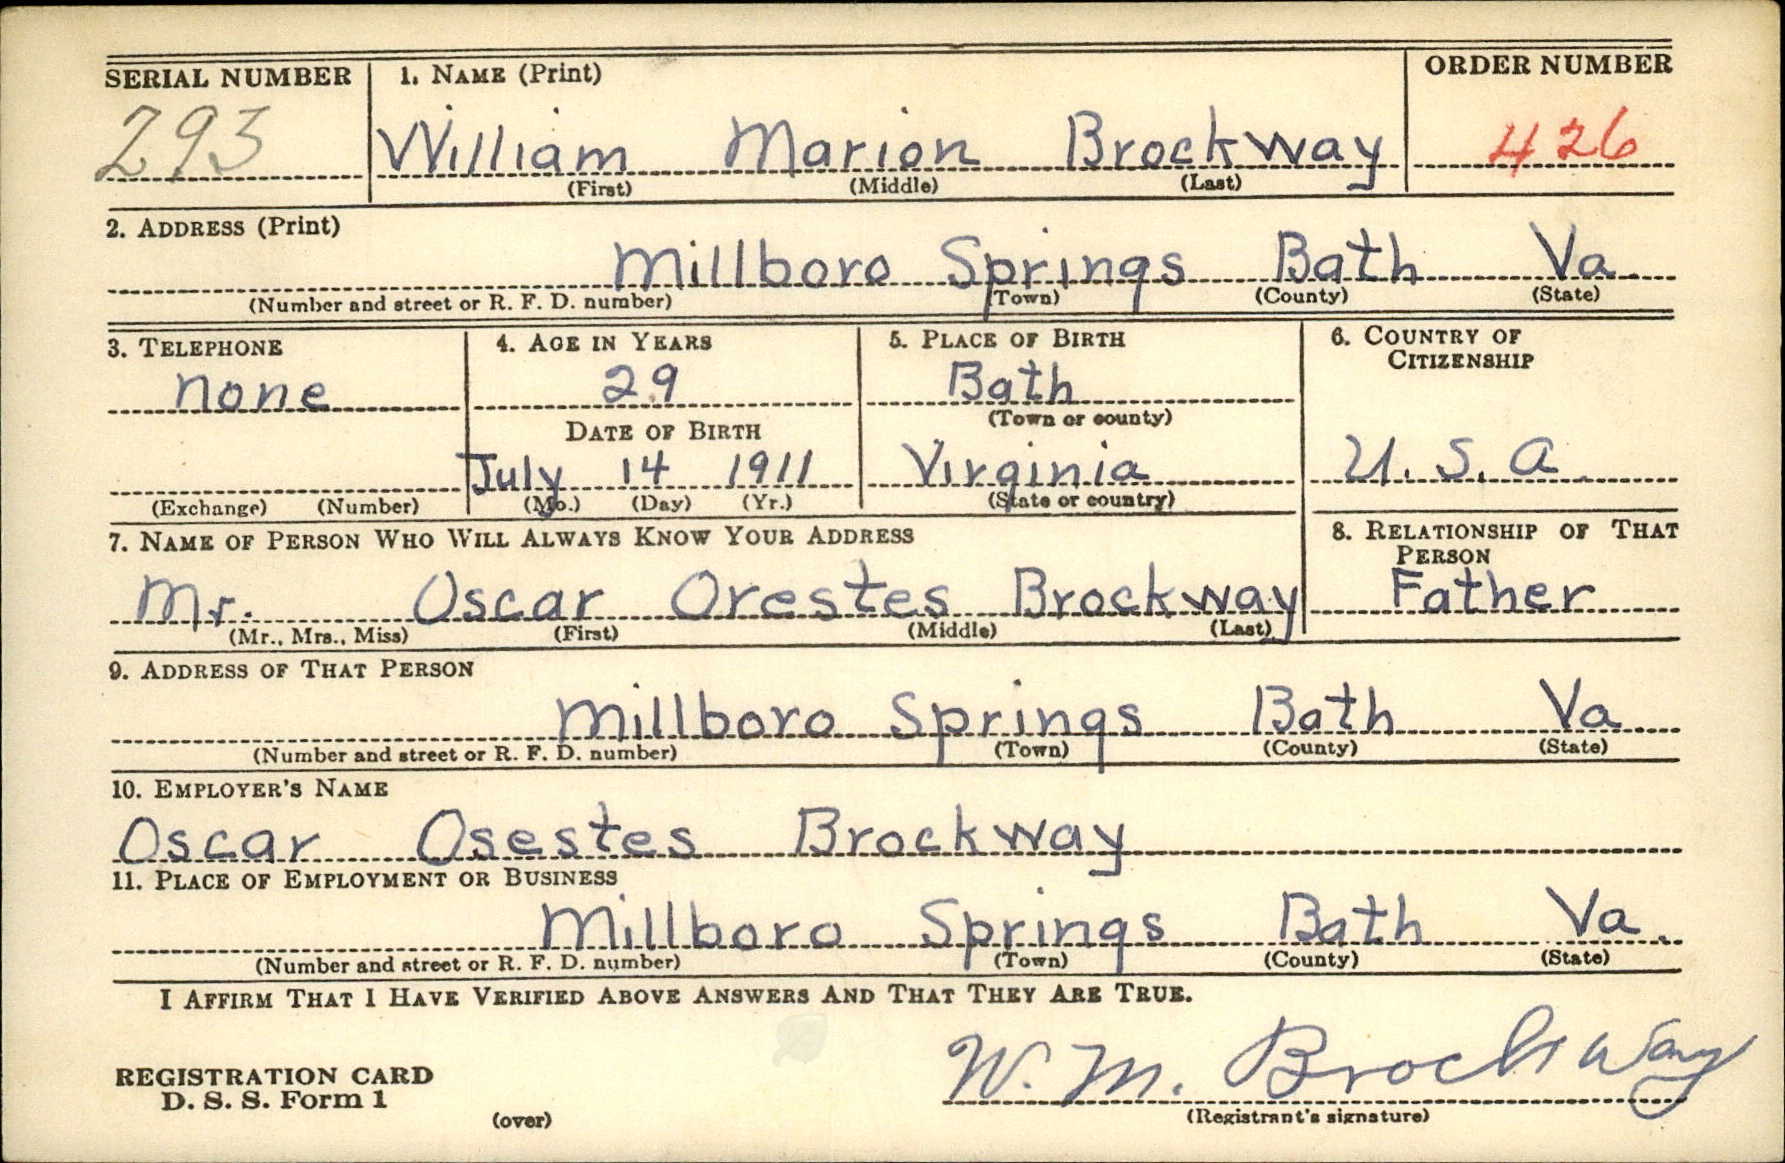 SERIAL NUMBER 1. NAME (Print) ORDER NUMBER
293 William Marion Brockway 426
(First) (Middle) (Last)
2. ADDRESS (Print)
Millboro Springs Bath Va.
(Number and street or R. F. D. number) (Town) (County) (State)
3. TELEPHONE 4. AGE IN YEARS 5. PLACE OF BIRTH 6. COUNTRY OF
CITIZENSHIP
none 29 Bath
(Town or county)
DATE OF BIRTH
July 14 1911 Virginia U.S.A.
(Exchange) (Number) (Mo.) (Day) (Yr.) (State or country)
7. NAME OF PERSON WHO WILL ALWAYS KNOW YOUR ADDRESS 8. RELATIONSHIP OF THAT
PERSON
Mr. Oscar Orestes Brockway Father
(Mr., Mrs., Miss) (First) (Middle) (Last)
9. ADDRESS OF THAT PERSON
Millboro Springs Bath Va
(Number and street or R. F. D. number) (Town) (County) (State)
10. EMPLOYER'S NAME
Oscar Osestes Brockway
11. PLACE OF EMPLOYMENT OR BUSINESS
Millboro Springs Bath Va.
(Number and street or R. F. D. number) (Town) (County) (State)
I AFFIRM THAT I HAVE VERIFIED ABOVE ANSWERS AND THAT THEY ARE TRUE.
W. M. Brockway
REGISTRATION CARD
D. S. S. Form 1
(over) (Registrant's signature)